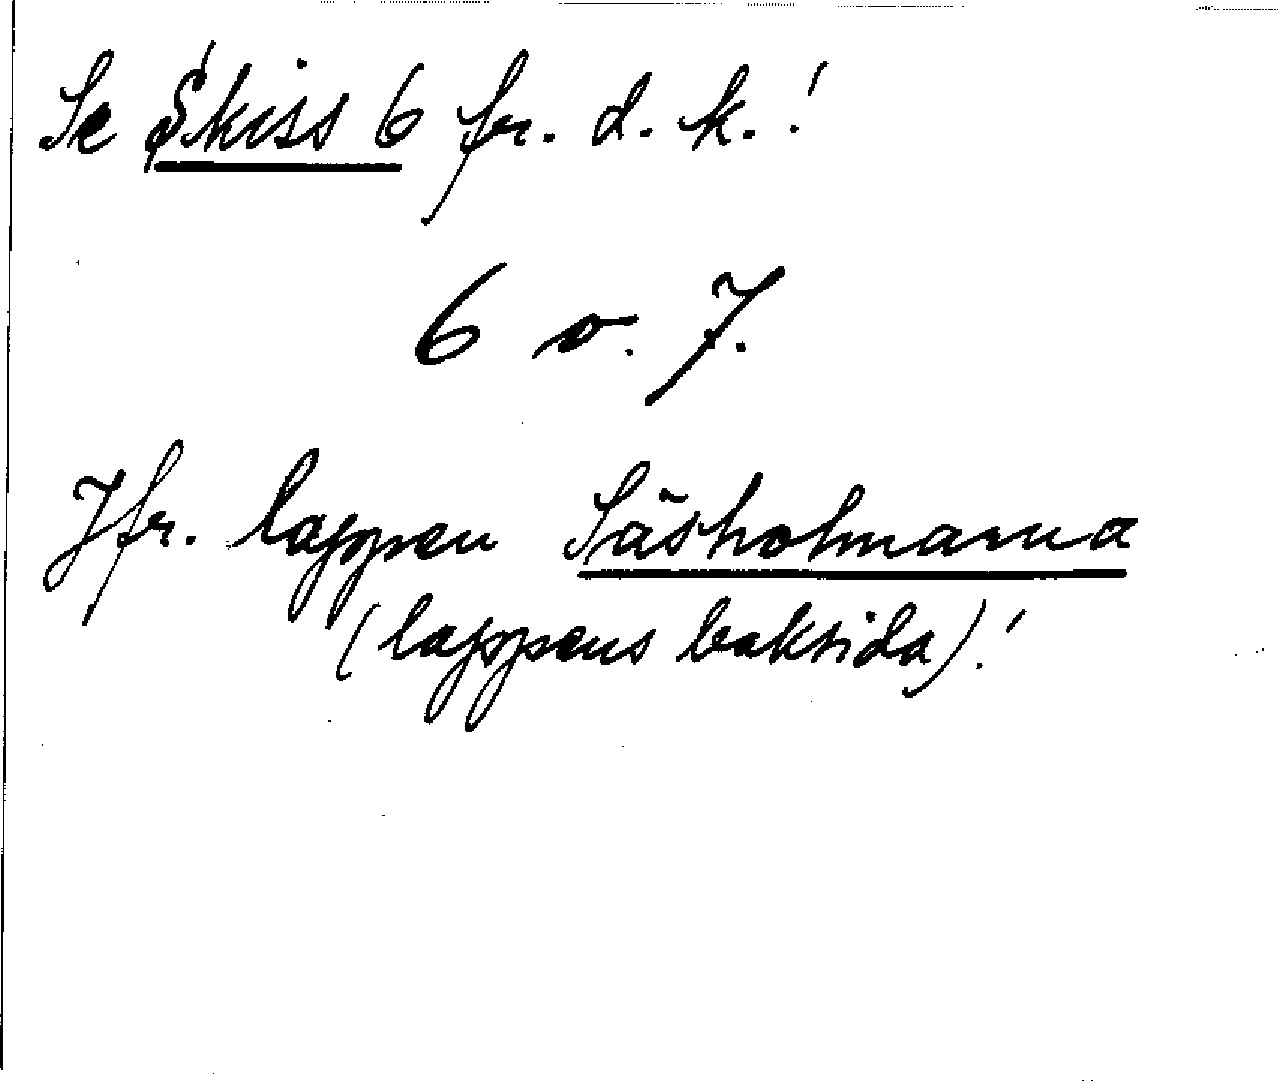 Se Skiss 6 fr. d. k.!
6 o. 7.
Jfr. lappen Säsholmarna
(lappens baksida).!